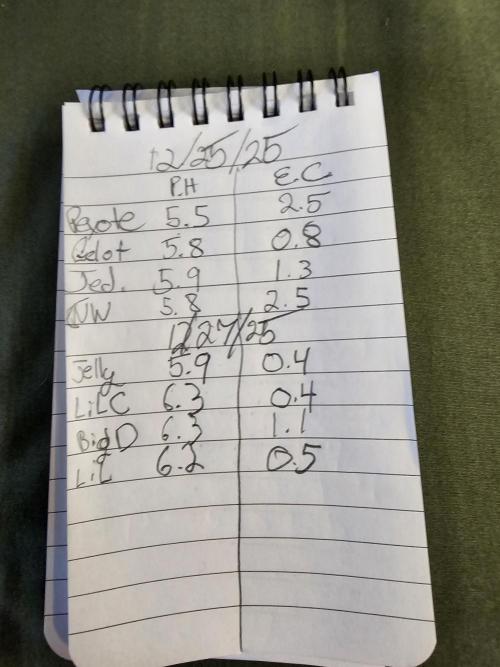 12/25/25
P.H E.C
5.5 2.5
5.8 0.8
Jed. 5.9 1.3
NW 5.8 2.5
12/27/25
Jelly 5.9 0.4
LiLC 6.3 0.4
BigD 6.3 1.1
LiL 6.2 0.5